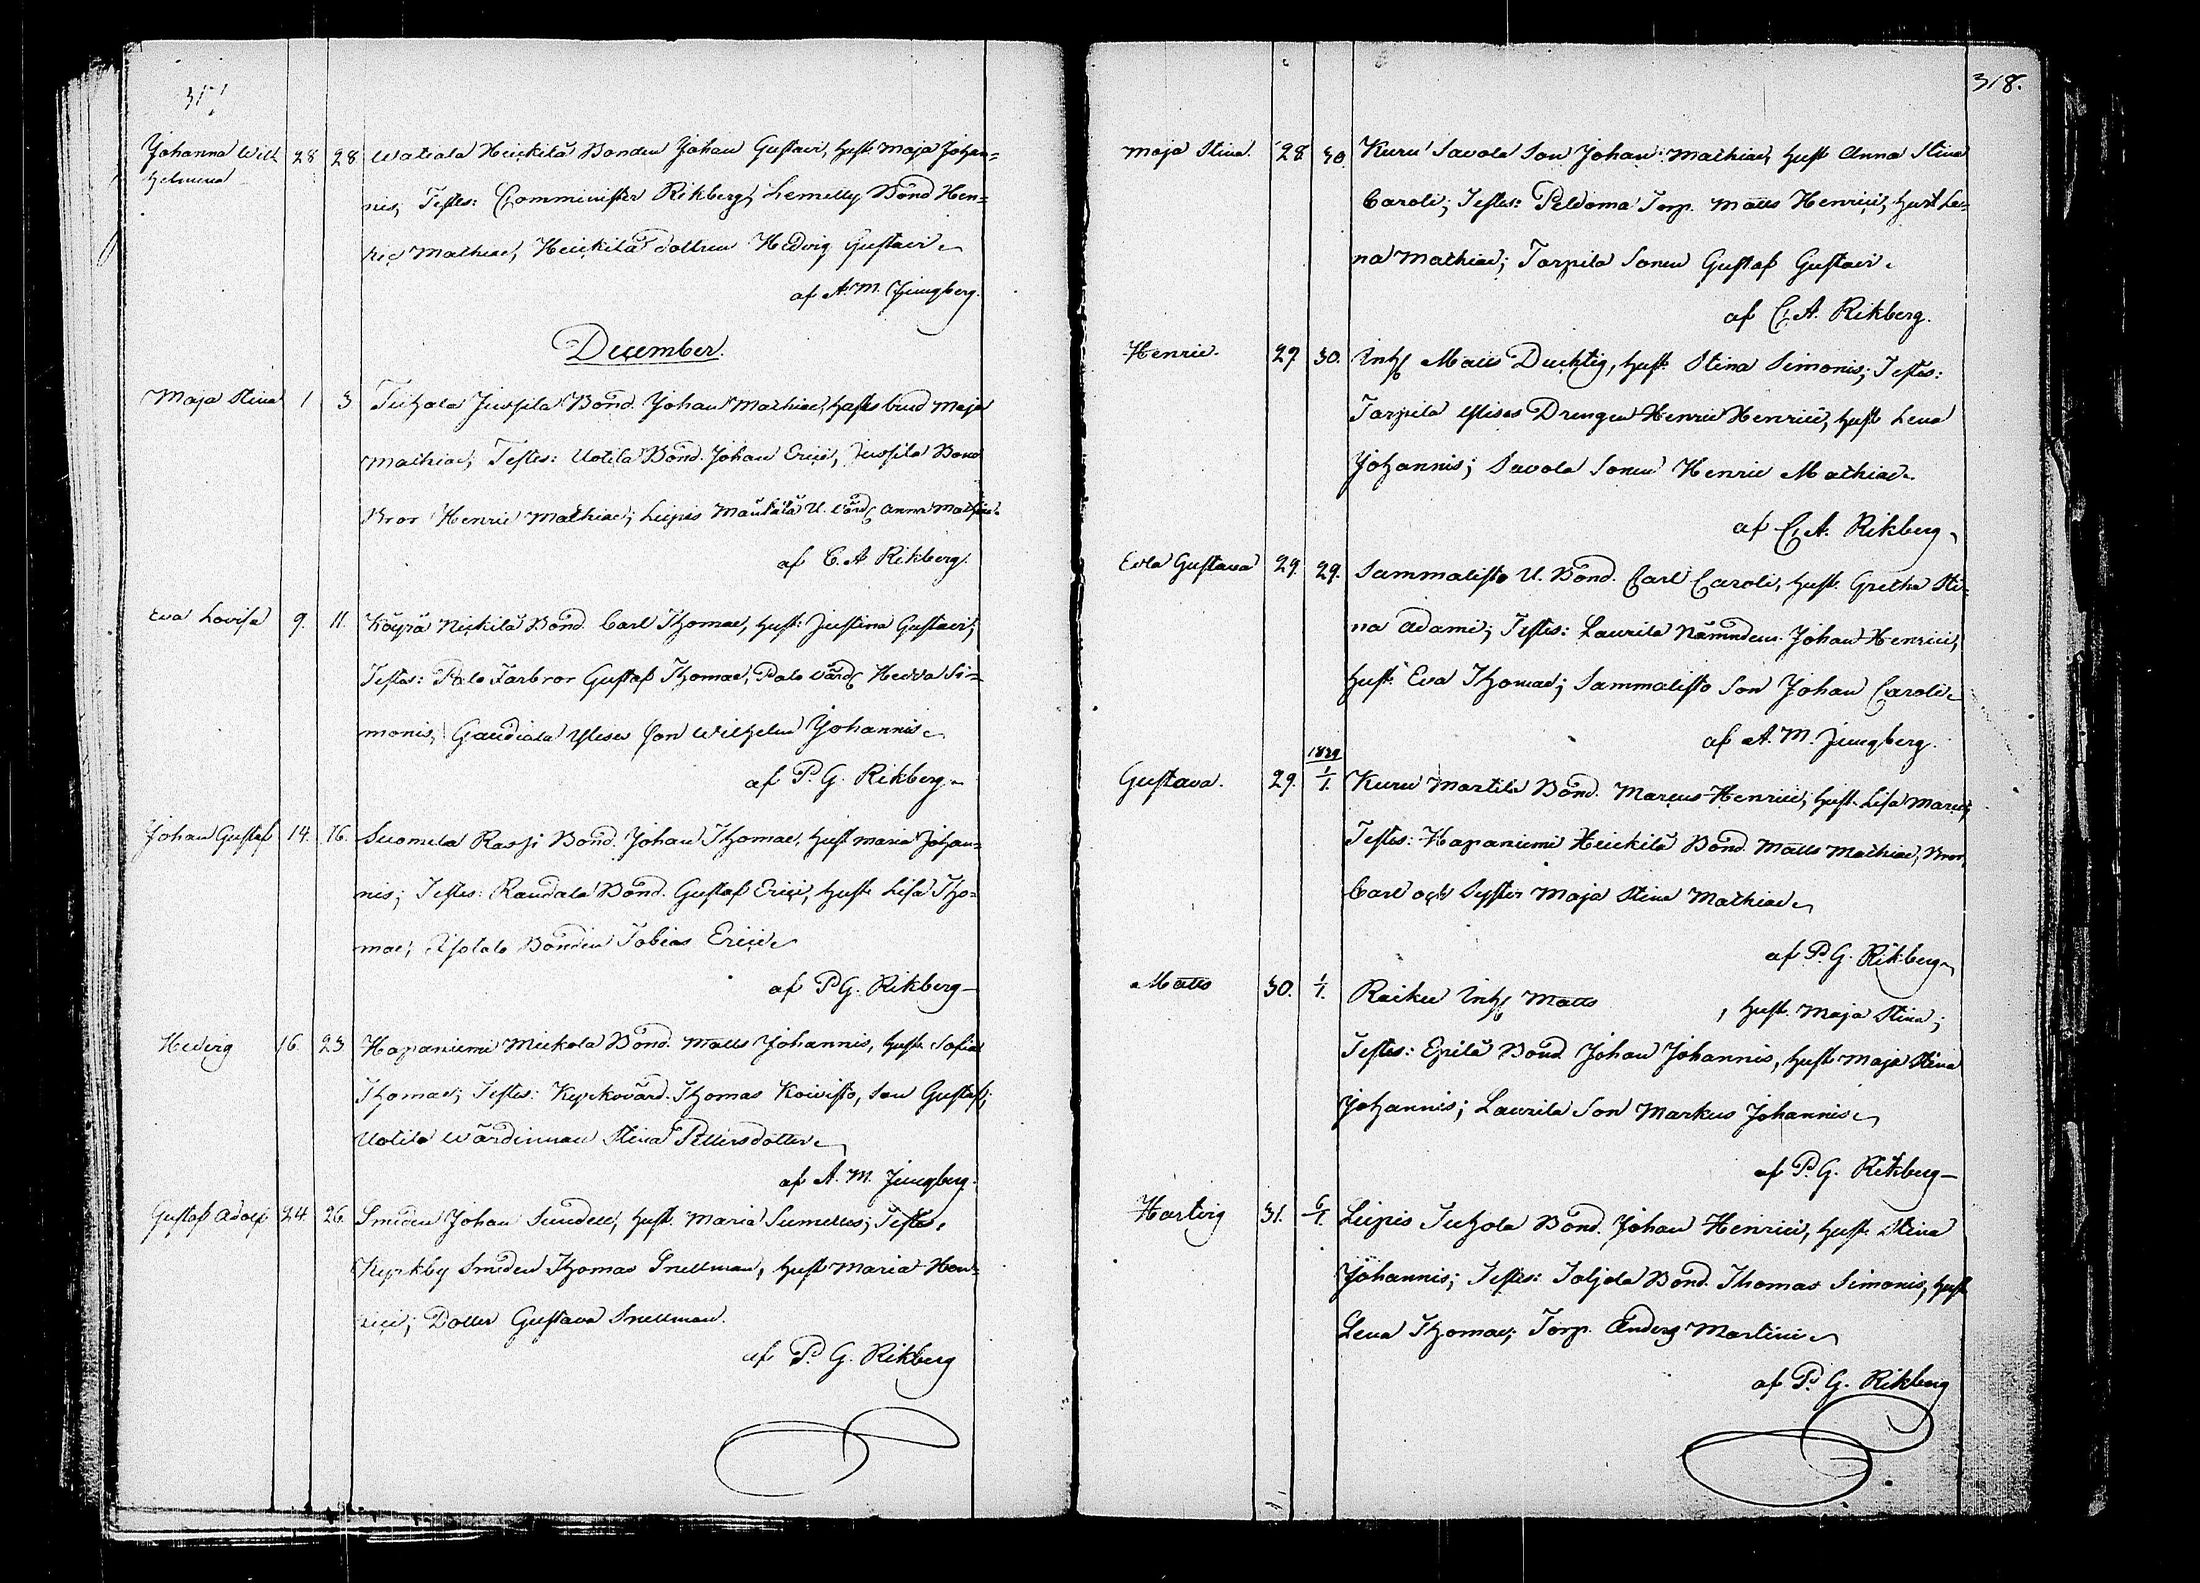 317
Johanna Wilh 28 28 Watiala Heickilä Bonden Johan Gustavi, hust. Maja Johan=
helmina nis, Testes: Comminister Rikberg, Lemetty Bond Hen=
ric Mathiae, Heickilä dottren Hedvig Gustavi.
af A. M. Ljungberg.
December.
Maja Stina 1 3 Juhola Jussila Bond. Johan Mathiae, hustru Maja
Mathiae, Testes: Uotila Bond. Johan Erici, Jussila Bond
Bror Henric Mathiae; Liepis U. värd Anna Mathiae.
af C. A Rikberg.
Eva Lovisa 9. 11. Köyrä Nickilä Bond. Carl Thomae, hust: Justina Gustavi,
Testes: Palo Farbror Gustaf Thomae, Palo värd Hedda Si=
monis, Gaudiala Son Wilhelm Johannis.
af P. G. Rikberg.
Johan Gustaf 14. 16. Suomela Rassi Bond. Johan Thomae, hust Maria Johan=
nis; Testes: Raudala Bond. Gustaf Erici, hust. Lisa Tho=
mae, Isotalo Bonden Tobias Erici.
af P G. Rikberg—
Hedvig 16. 23 Hapaniemi Mickola Bond. Matts Johannis, hust. Sofia
Thomae; Testes: Kyrkovärd. Thomas Koivisto, Son Gustaf;
Uotila Wärdinnan Stina Pettersdotter.
af A. M. Ljungberg.
Gustaf Adolf 24. 26. Smeden Johan Sundell, hust. Maria Sumelius; Testes,
Kyrkby Smeden Thomas Snellman, hust Maria Hen=
rici; Dotter Gustava Snellman.
af P. G. Rikberg
318.
Maja Stina. 28. 30. Kuru Savola Son Johan Mathiae, hust Anna Stina
Caroli; Testes: Peldoma Torp. Matts Henrici, hust Le=
na Mathiae; Tarpila Sonen Gustaf Gustavi.
af C. A. Rikberg.
Henric. 29 30. Inh. Matts Duchtig, hust. Stina Simonis; Testes:
Tarpila Drengen Henric Henrici, hust Lena
Johannis; Savola Sonen Henric Mathiae.
af C. A. Rikberg.
Evla Gustava 29. 29. Sammalisto U. Bond. Carl Caroli, hust. Gretha Sti=
na Adami; Testes: Laurila Nämndem. Johan Henrici,
hust. Eva Thomae; Sammalisto Son Johan Caroli.
af A. M. Ljungberg.
1829
Gustava. 29. 1/1. Kuru Martila Bond. Marcus Henrici, hust. Lisa Marci;
Testes: Hapaniemi Heickilä Bond. Matts Mathiae, Bror,
Carl och Syster Maja Stina Mathiae.
af P. G. Rikberg
Matts 30. 1/1. Raiku Inh. Matts , hust. Maja Stina;
Testes: Epilä Bond Johan Johannis, hust Maja Stina
Johannis; Laurila Son Markus Johannis.
af P. G. Rikberg—
Hartvig 31. 6/1. Liepis Juhola Bond. Johan Henrici, hust. Stina
Johannis; Testes: Toljola Bond. Thomas Simonis, hust
Lena Thomae; Torp. Anders Martini.
af P. G. Rikberg